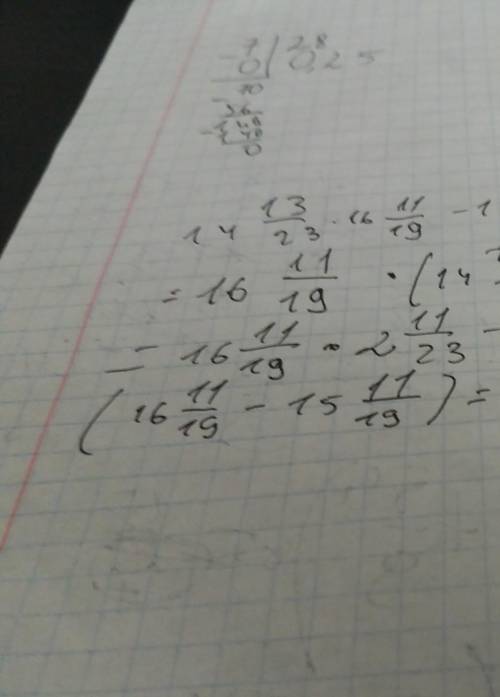 7 | 28
- 0 | 0,25
70
14 13/23 · 16 11/19 - 1
= 16 11/19 · (14
= 16 11/19 · 2 11/23 -
(16 11/19 - 15 11/19) =